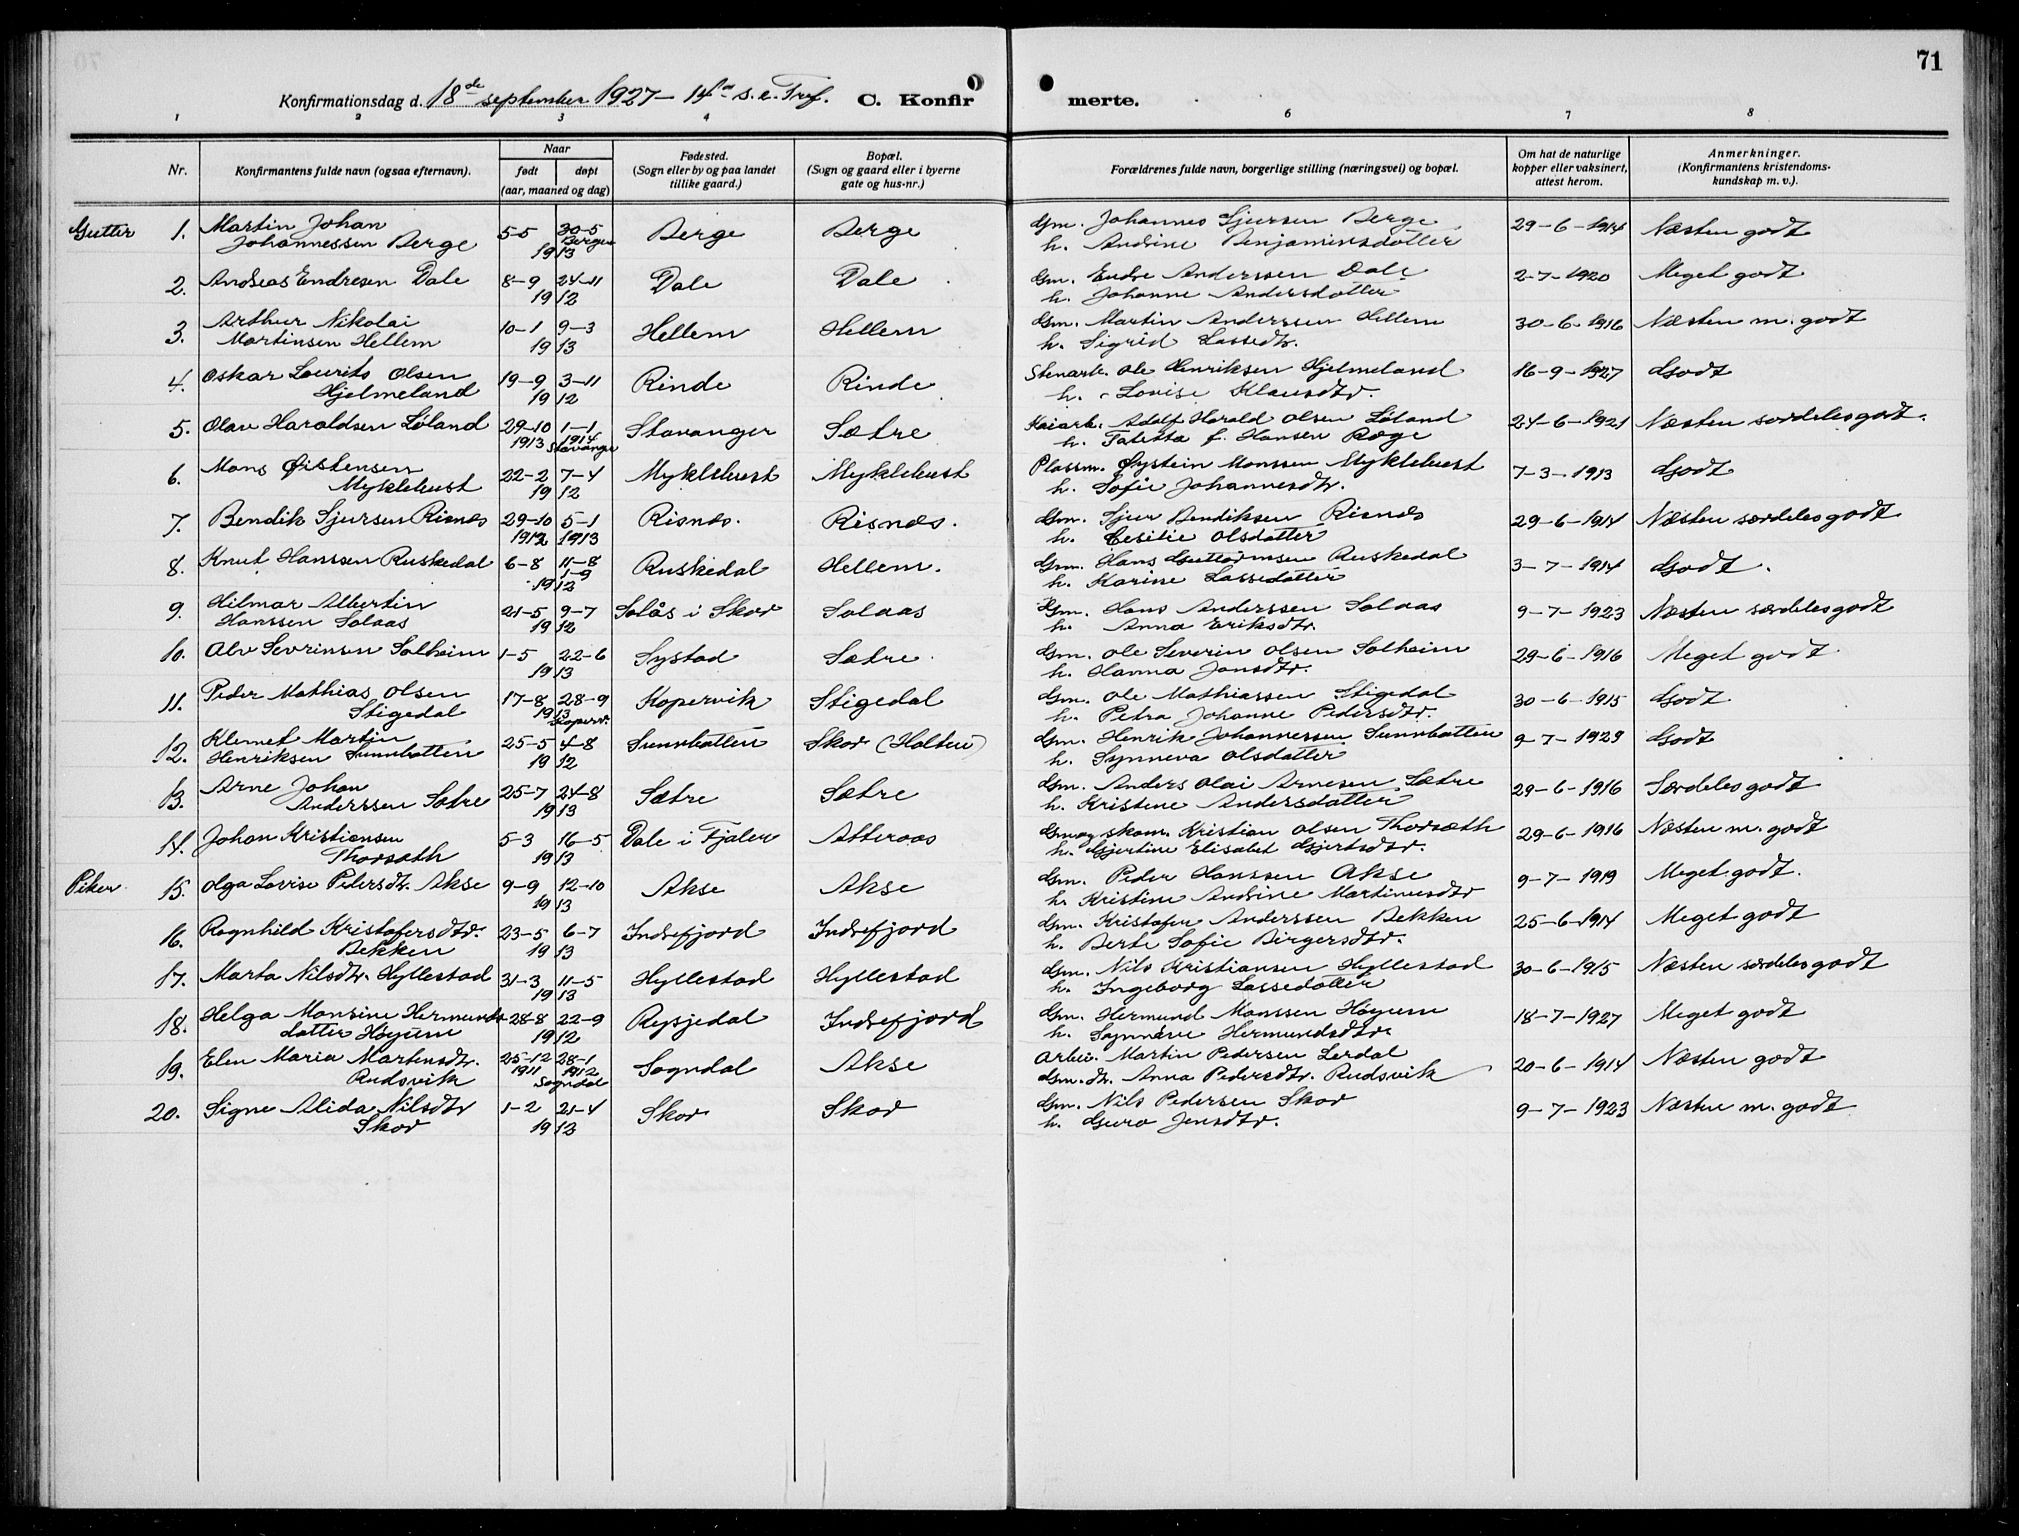 71
Konfirmationsdag d. 18de september 1927 – 14de s. e. Tref. C. Konfir merte.
1 2 3 4 6 7 8
Nr. Konfirmantens fulde navn (ogsaa efternavn). Naar født døpt (aar, maaned og dag)
Fødested. (Sogn eller by og paa landet tillike gaard.)
Bopæl. (Sogn og gaard eller i byerne gate og hus-nr.)
Forældrenes fulde navn, borgerlige stilling (næringsvei) og bopæl.
Om hat de naturlige kopper eller vaksinert, attest herom.
Anmerkninger. (Konfirmantens kristendoms-kundskap m. v.).
Gutter 1. Martin Johan Johannessen Berge 5-5 30-5 Bergen 1913 Berge Berge Gm. Johannes Sjursen Berge h. Andrine Benjaminsdatter 29-6-1914 Næsten godt
2. Andreas Endresen Dale 8-9 24-11 1912 Dale Dale Gm. Endre Anderssen Dale h. Johanne Andersdatter 2-7-1920 Meget godt
3. Arthur Nikolai Martinsen Hellem 10-1 9-3 1913 Hellem Hellem Gm. Martin Anderssen Hellem h. Sigrid Lassedtr. 30-6-1916 Næsten m. godt
4. Oskar Laurits Olsen Hjelmeland 19-9 3-11 1912 Rinde Rinde Stenarb. Ole Henriksen Hjelmeland h. Lovise Klausdtr. 16-9-1927 Godt
5. Olav Haraldsen Løland 29-10 1913 1-1 1914 Stavanger Stavanger Sætre Kaiarb. Adolf Harald Olsen Løland h. f. Hansen Røge 24-6-1921 Næsten særdeles godt.
6. Mons Øistensen Myklebust 22-2 7-4 1912 Myklebust Myklebust Plassm. Øystein Monssen Myklebust h. Sofie Johannesdtr. 7-3-1913 Godt
7. Bendik Sjursen Risnes 29-10 1912 5-1 1913 Risnes. Risnes. Gm. Sjur Bendiksen Risnes h. Cesilie Olsdatter 29-6-1914 Næsten særdeles godt
8. Knut Hanssen Ruskedal 6-8 11-8 1-9 1912 Ruskedal Hellem. Gm. Hans Guttormsen Ruskedal h. Karine Lassedatter 3-7-1914 Godt.
9. Hilmar Albertin Hanssen Solaas 21-5 9-7 1912 Solås i Skor Solaas Gm. Hans Anderssen Solaas h. Anna Eriksdtr. 9-7-1923 Næsten særdeles godt
10. Alv Sevrinsen Solheim 1-5 22-6 1913 Systad Sætre. Gm. Ole Severin Olsen Solheim h. Hanna Jonsdtr. 29-6-1916 Meget godt
11. Peder Mathias Olsen Stigedal 17-8 28-9 1913 Koperv. Kopervik Stigedal Gm. Ole Mathiassen Stigedal h. Petra Johanne Pedersdtr. 30-6-1915 Godt
12. Klemet Martin Henriksen Sunnbotten 25-5 4-8 1912 Sunnbotten Skor (Holten) Gm. Henrik Johannessen Sunnbotten h. Synneva Olsdatter 9-7-1923 Godt
13. Arne Johan Anderssen Sætre 25-7 24-8 1913 Sætre Sætre Gm. Anders Olai Arnesen Sætre h. Kristine Andersdatter 29-6-1916 Særdeles godt
14. Johan Kristiansen Thorsæth 5-3 16-5 1913 Dale i Fjaler Atteraas Gm og skom. Kristian Olsen Thorsæth h. Gjertine Elisabet Gjertsdtr. 29-6-1916 Næsten m. godt
Piker 15. Olga Lovise Pedersdtr. Akse 9-9 12-10 1913 Akse Akse Gm. Peder Hanssen Akse h. Kristine Andrine Martinusdtr 9-7-1919 Meget godt.
16. Ragnhild Kristofersdtr. Bekken 23-5 6-7 1913 Indrefjord Indrefjord Gm. Kristofer Anderssen Bekken h. Berte Sofie Birgersdtr. 25-6-1914 Meget godt
17. Marta Nilsdtr. Hyllestad 31-3 11-5 1913 Hyllestad Hyllestad Gm. Nils Kristiansen Hyllestad h. Ingeborg Lassedatter 30-6-1915 Næsten særdeles godt
18. Helga Monsine Hermunds datter Høyum 28-8 22-9 1912 Rysjedal Indrefjord Gm. Hermund Monssen Høyum h. Hermundsdtr. 18-7-1927 Meget godt
19. Elen Maria Martinsdtr. Rudsvik 25-12 1911 28-1 1912 Sogndal Sogndal Akse Arbei. Martin Pedersen Lerdal Gm. dtr. Anna Pedersdtr. Rudsvik 20-6-1914 Næsten godt
20. Signe Alida Nilsdtr Skor 1-2 21-4 1912 Skor Skor Gm. Nils Pedersen Skor h. Guro Jensdtr. 9-7-1923 Næsten m. godt